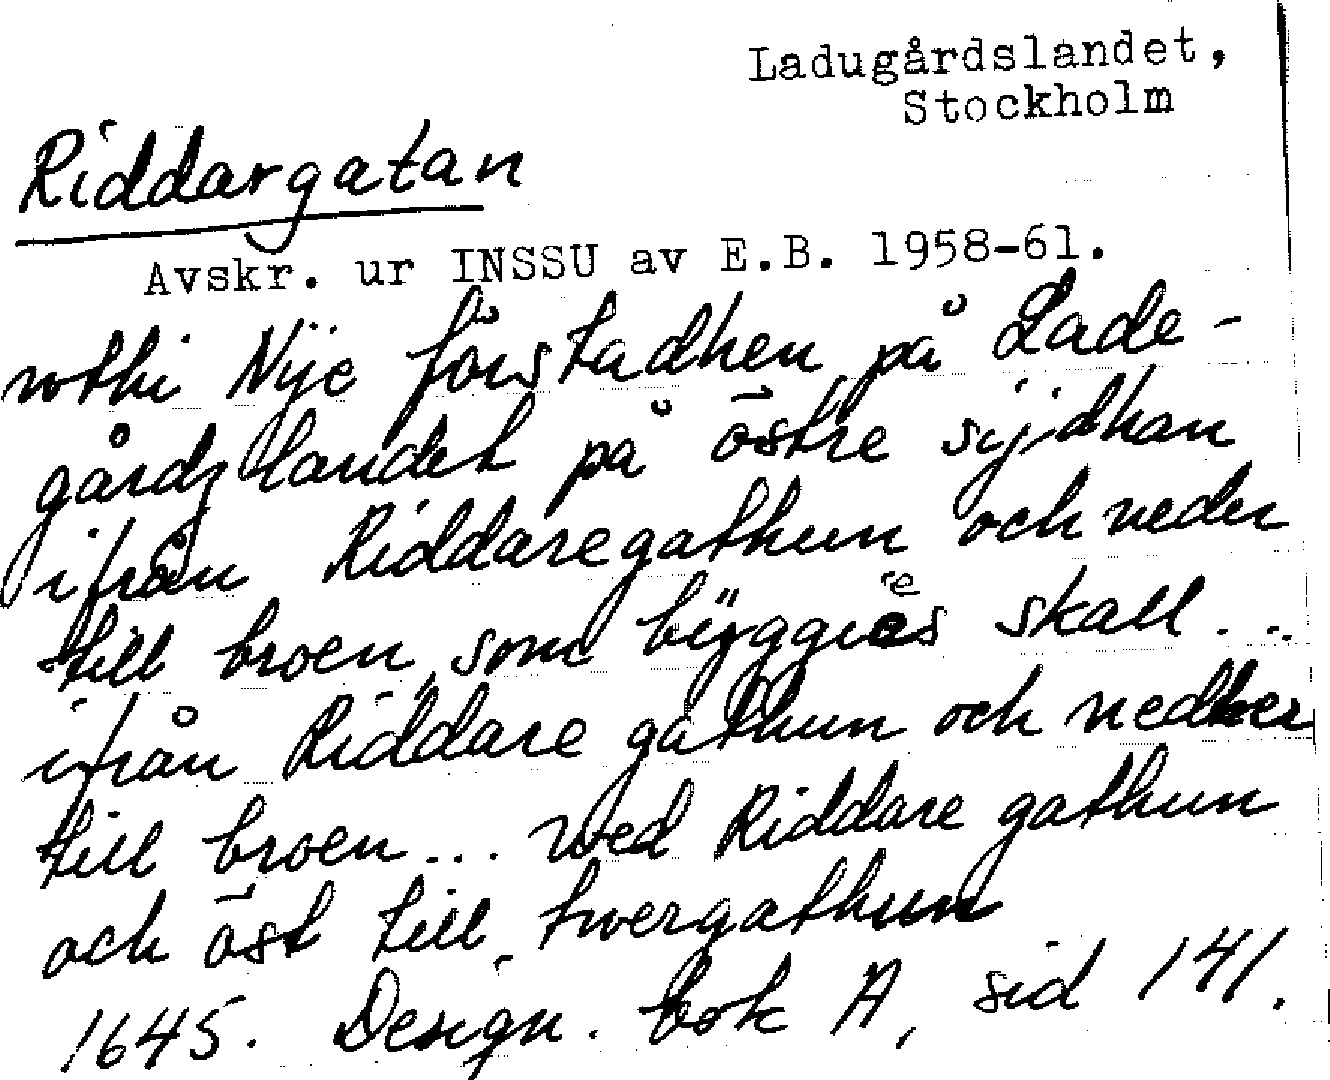 Ladugårdslandet,
Stockholm
Riddargatan
Avskr. ur INSSU av E.B. 1958-61.
wthi Nije förstadhen på Lade-
gårdzlandet på östre sijdhan
ifrån Riddaregathun och neder
till broen som byggies skall...
ifrån Riddare gathun och nedher
till broen... wed Riddare gathun
och öst till twergathun
1645. Design. bok A, sid 141.